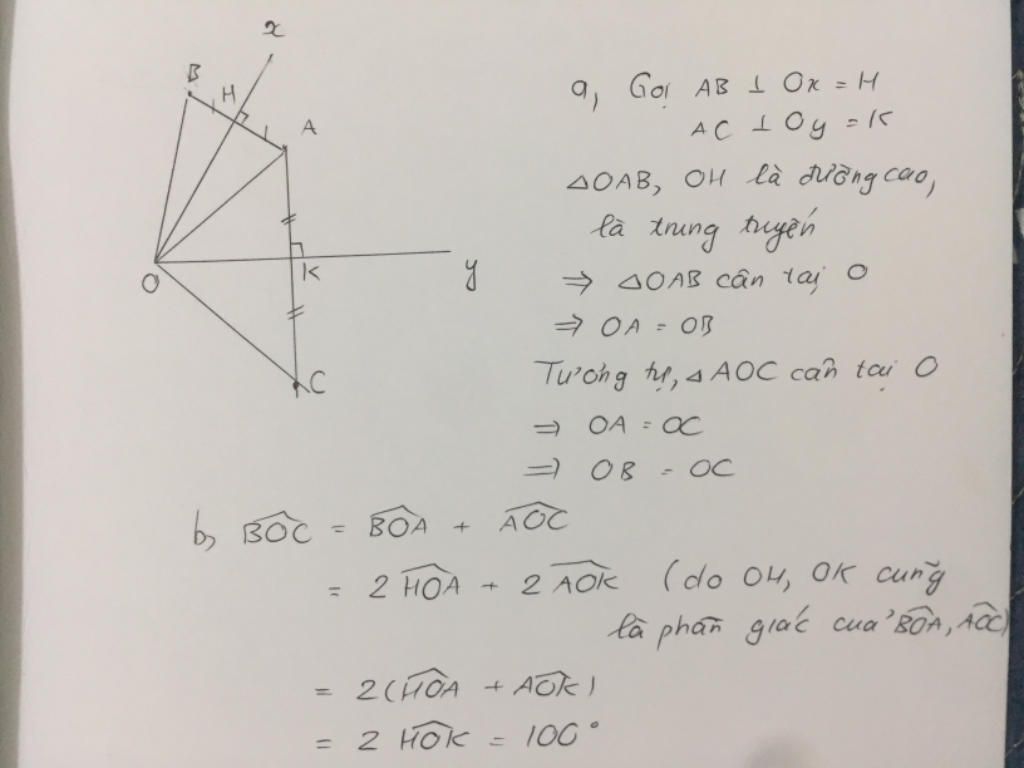 x
B
H
A
O
K
y
C
a, Gọi AB ⊥ Ox = H
AC ⊥ Oy = K
△OAB, OH là đường cao,
là trung tuyến
⇒ △OAB cân tại O
⇒ OA = OB
Tương tự, △AOC cân tại O
⇒ OA = OC
⇒ OB = OC
b, \widehat{BOC} = \widehat{BOA} + \widehat{AOC}
= 2 \widehat{HOA} + 2 \widehat{AOK} (do OH, OK cũng
là phân giác của \widehat{BOA}, \widehat{AOC})
= 2(\widehat{HOA} + \widehat{AOK})
= 2 \widehat{HOK} = 100°